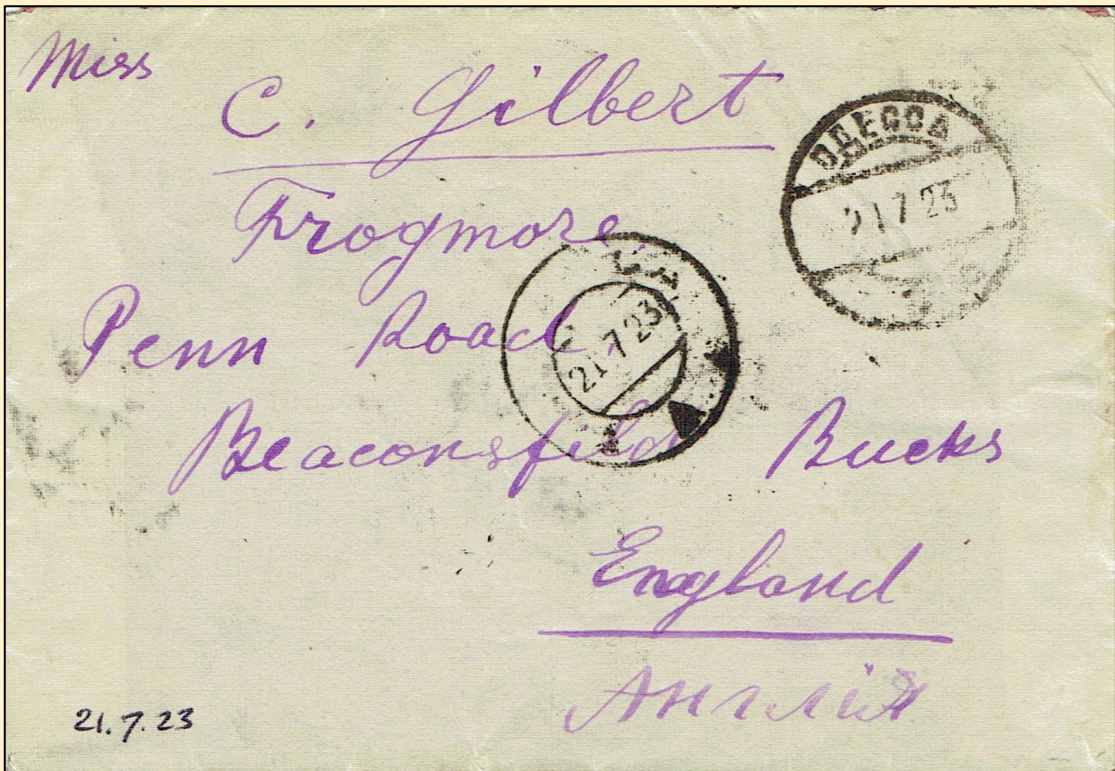 Miss
C. Gilbert
Frogmore,
Penn Road,
Beaconsfild Bucks
England
Англія
ОДЕССА
21 7 23
21 7 23
21.7.23